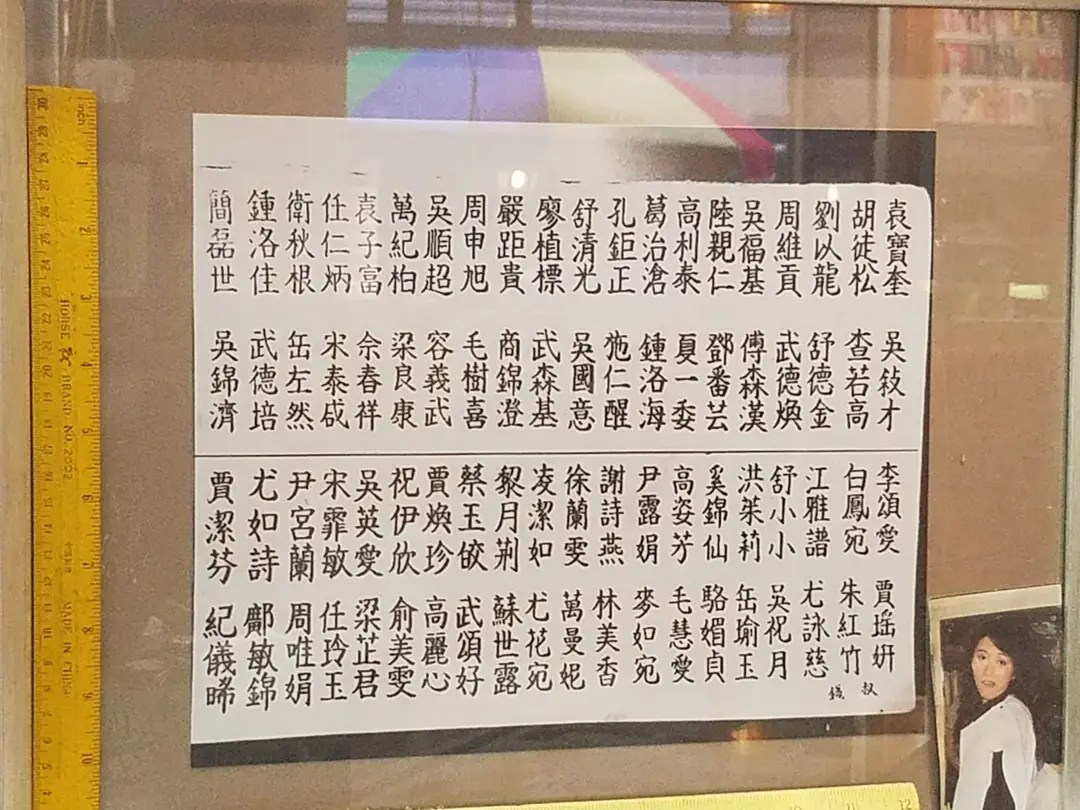 袁寶奎
胡徒松
劉以龍
周維貢
吳福基
陸親仁
高利泰
葛治滄
孔鉅正
舒清光
廖植標
嚴距貴
周申旭
吳順超
萬紀柏
袁子富
任仁炳
衛秋根
鍾洛佳
簡磊世
吳敍才
查若高
舒德金
武德煥
傅森漢
鄧番芸
夏一委
鍾洛海
施仁醒
吳國意
武森基
商錦澄
毛樹喜
容義武
梁良康
佘春祥
宋泰成
缶左然
武德培
吳錦濟
李頌愛
白鳳宛
江雅譜
舒小小
洪茱莉
奚錦仙
高姿芳
尹露娟
謝詩燕
徐蘭雯
凌潔如
黎月荆
蔡玉皎
賈煥珍
祝伊欣
吳英愛
宋霏敏
尹宮蘭
尤如詩
賈潔芬
賈瑶妍
朱紅竹
尤詠慈
吳祝月
缶瑜玉
駱媚貞
毛慧愛
麥如宛
林美香
萬曼妮
尤花宛
蘇世露
武頌好
高麗心
俞美雯
梁芷君
任玲玉
周唯娟
鄺敏錦
紀儀晞
inch
HORSE BRAND NO.2002
MADE IN CHINA